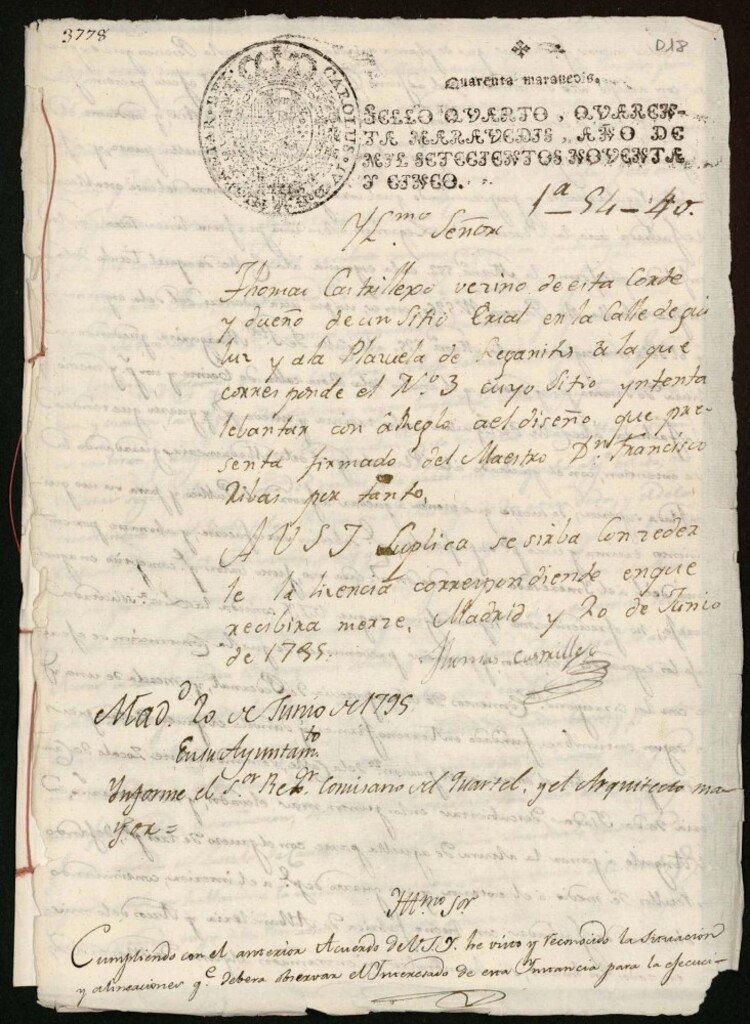 3778
D18
Quarenta maravedis.
SELLO QVARTO, QVAREN-
TA MARAVEDIS, AÑO DE
MIL SETECIENTOS NOVENTA
Y CINCO.
CAROLUS IV D G HISPANIAR REX
1ª-54-40.
Yllmo Señor
Thomas Castrillexo vecino de esta Corte
y dueño de un Sitio Erial en la Calle de
y a la Plazuela de Leganitos a la que
corresponde el N.º 3 cuyo Sitio yntenta
lebantar con àReglo a el diseño que pre-
senta firmado del Maestro Dn Francisco
Ribas por tanto,
A V S I Suplica se sirba Conzeder
le la licencia correspondiente en que
recibira merze, Madrid y 20 de Junio
de 1795.
Thomas Castrillejo
Madd. 20 de Junio de 1795
En su Ayuntamto
Ynforme el Sor Regor Comisario del Quartel, y el Arquitecto ma-
yor=
Yllmo Sor
Cumpliendo con el anterior Acuerdo de V.S.Y. he visto y reconocido la situacion
y alineaciones q.e debera observar el Interesado de esta Instancia para la ejecuci-